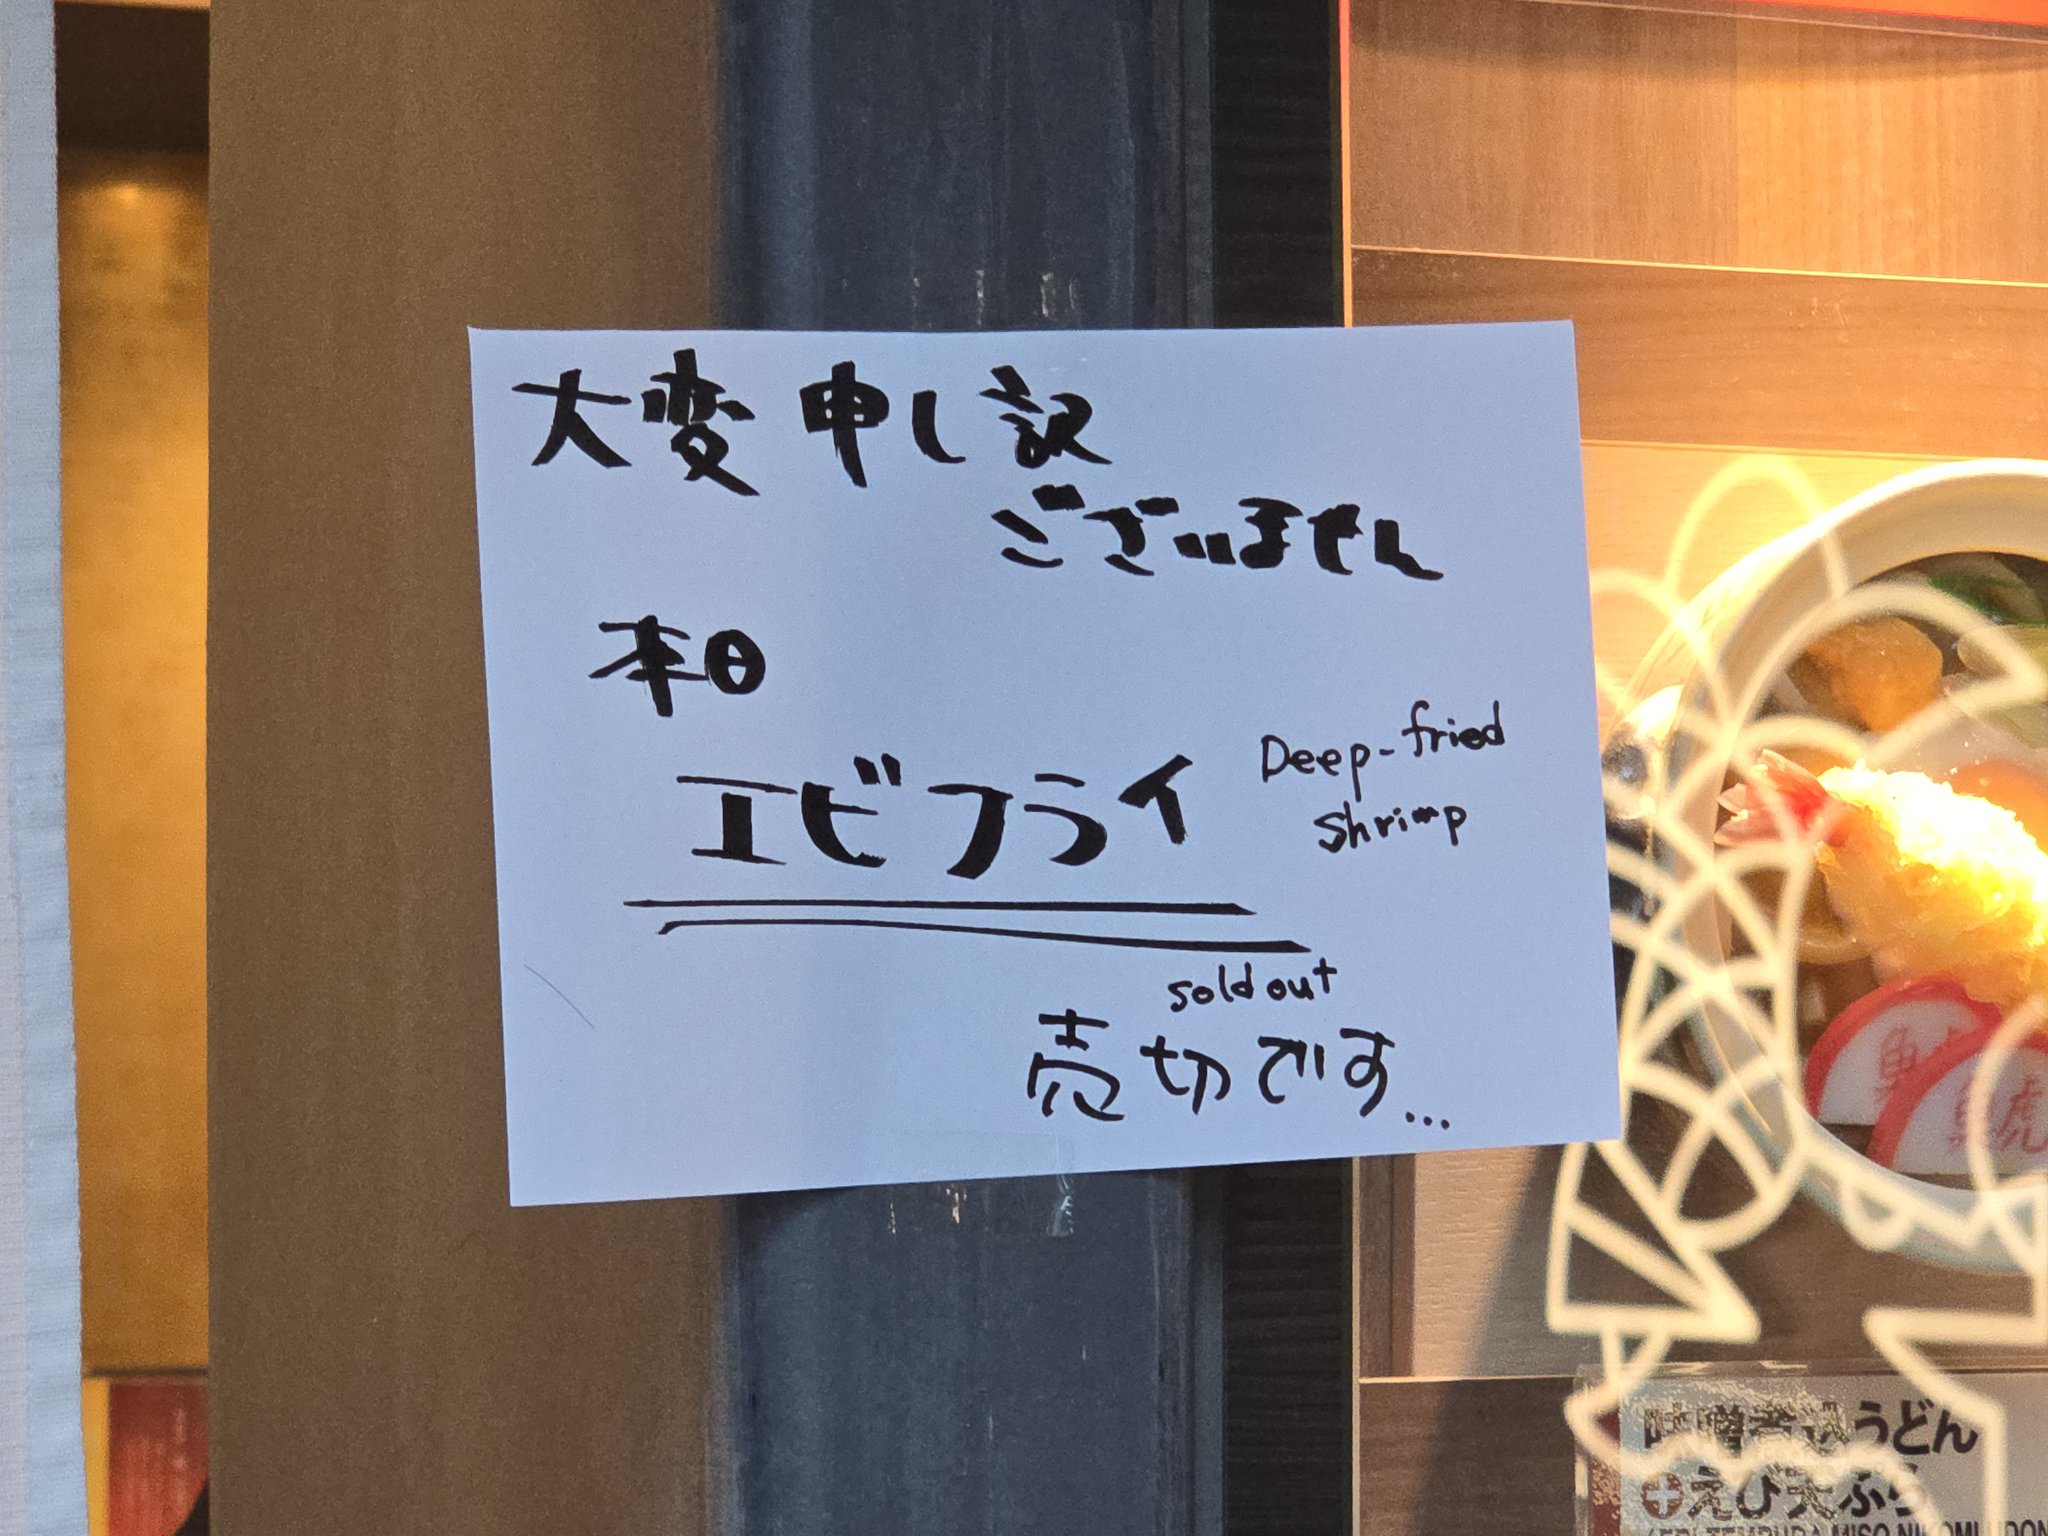 大変申し訳
ございません
本日
エビフライ
Deep-fried
shrimp
sold out
売切です...
魚虎
味噌煮込うどん
えび天ぷら